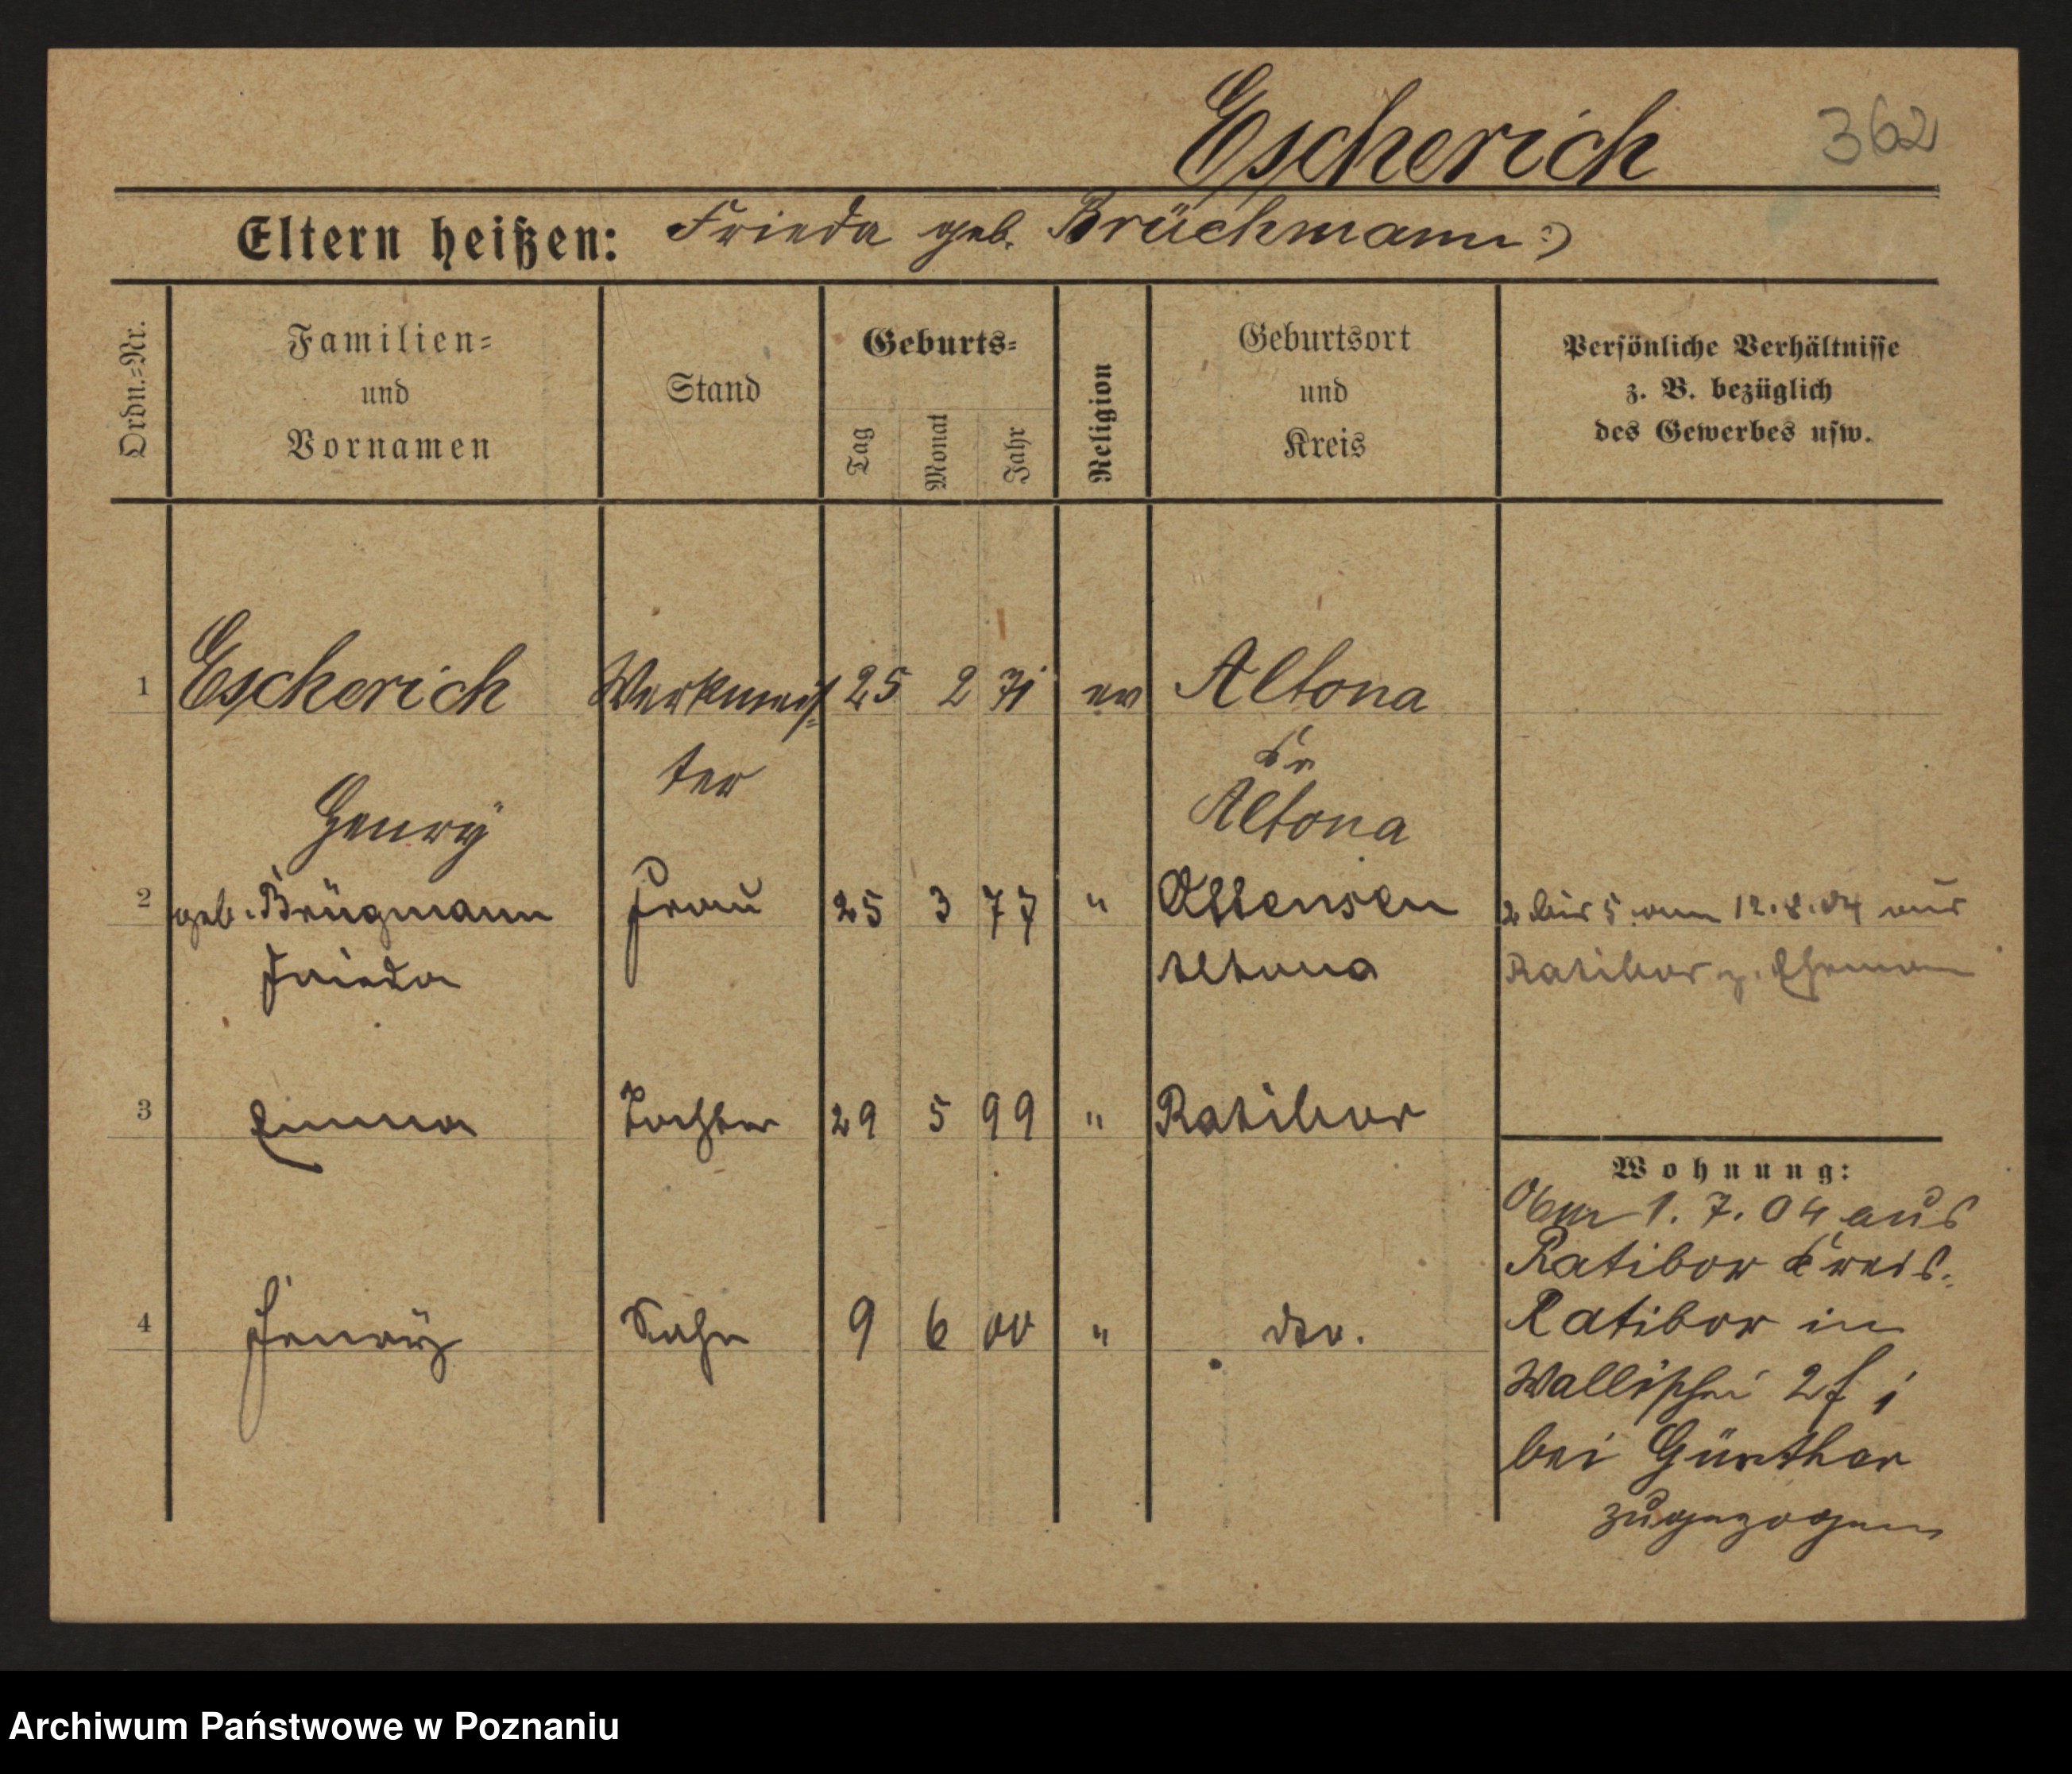 Escherich 362
Eltern heißen: Frieda geb. Brüchmann :)
Ordn.=Nr.
Familien=
und
Vornamen
Stand
Geburts=
Tag
Monat
Jahr
Religion
Geburtsort
und
Kreis
Persönliche Verhältnisse
z. B. bezüglich
des Gewerbes usw.
1 Escherich Werkmeis= 25 2 71 ev Altona
ter Kr
Henry Altona
2 geb. Brügmann Frau 25 3 77 " Ottensen 2 bis 5 am 12.8.04 aus
Frieda Altona Ratibor z. Ehemann
3 Emma Tochter 29 5 99 " Ratibor
4 Henry Sohn 9 6 00 " dto.
Wohnung:
Am 1. 7. 04 aus
Ratibor Kreis
Ratibor in
Wallischei 2
bei Günther
zugezogen
Archiwum Państwowe w Poznaniu